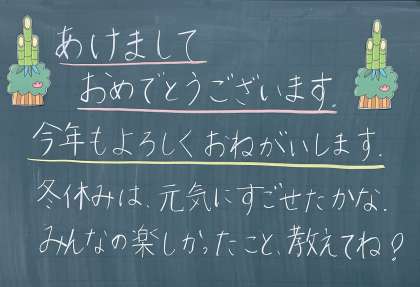 あけまして
おめでとうございます.
今年もよろしくおねがいします.
冬休みは、元気にすごせたかな.
みんなの楽しかったこと、教えてね?